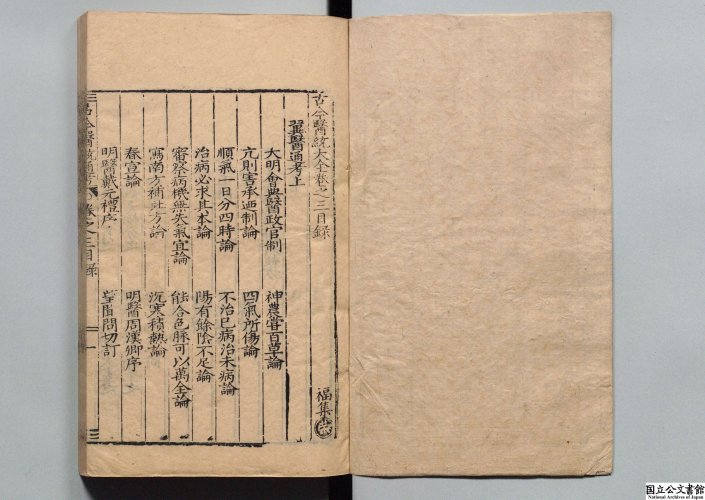 古今醫統大全卷之三目錄
福集
翼醫通考上
大明會典醫政官制
神農嘗百草論
亢則害承迺制論
四氣所傷論
順氣一日分四時論
不治已病治未病論
治病必求其本論
陽有餘陰不足論
審察病機無失氣宜論
能合色脉可以萬全論
瀉南方補北方論
沉寒積熱論
春宣論
明醫周漢卿序
明醫戴元禮序
望聞問切訂
古今醫統 卷之三目錄
一
国立公文書館
National Archives of Japan